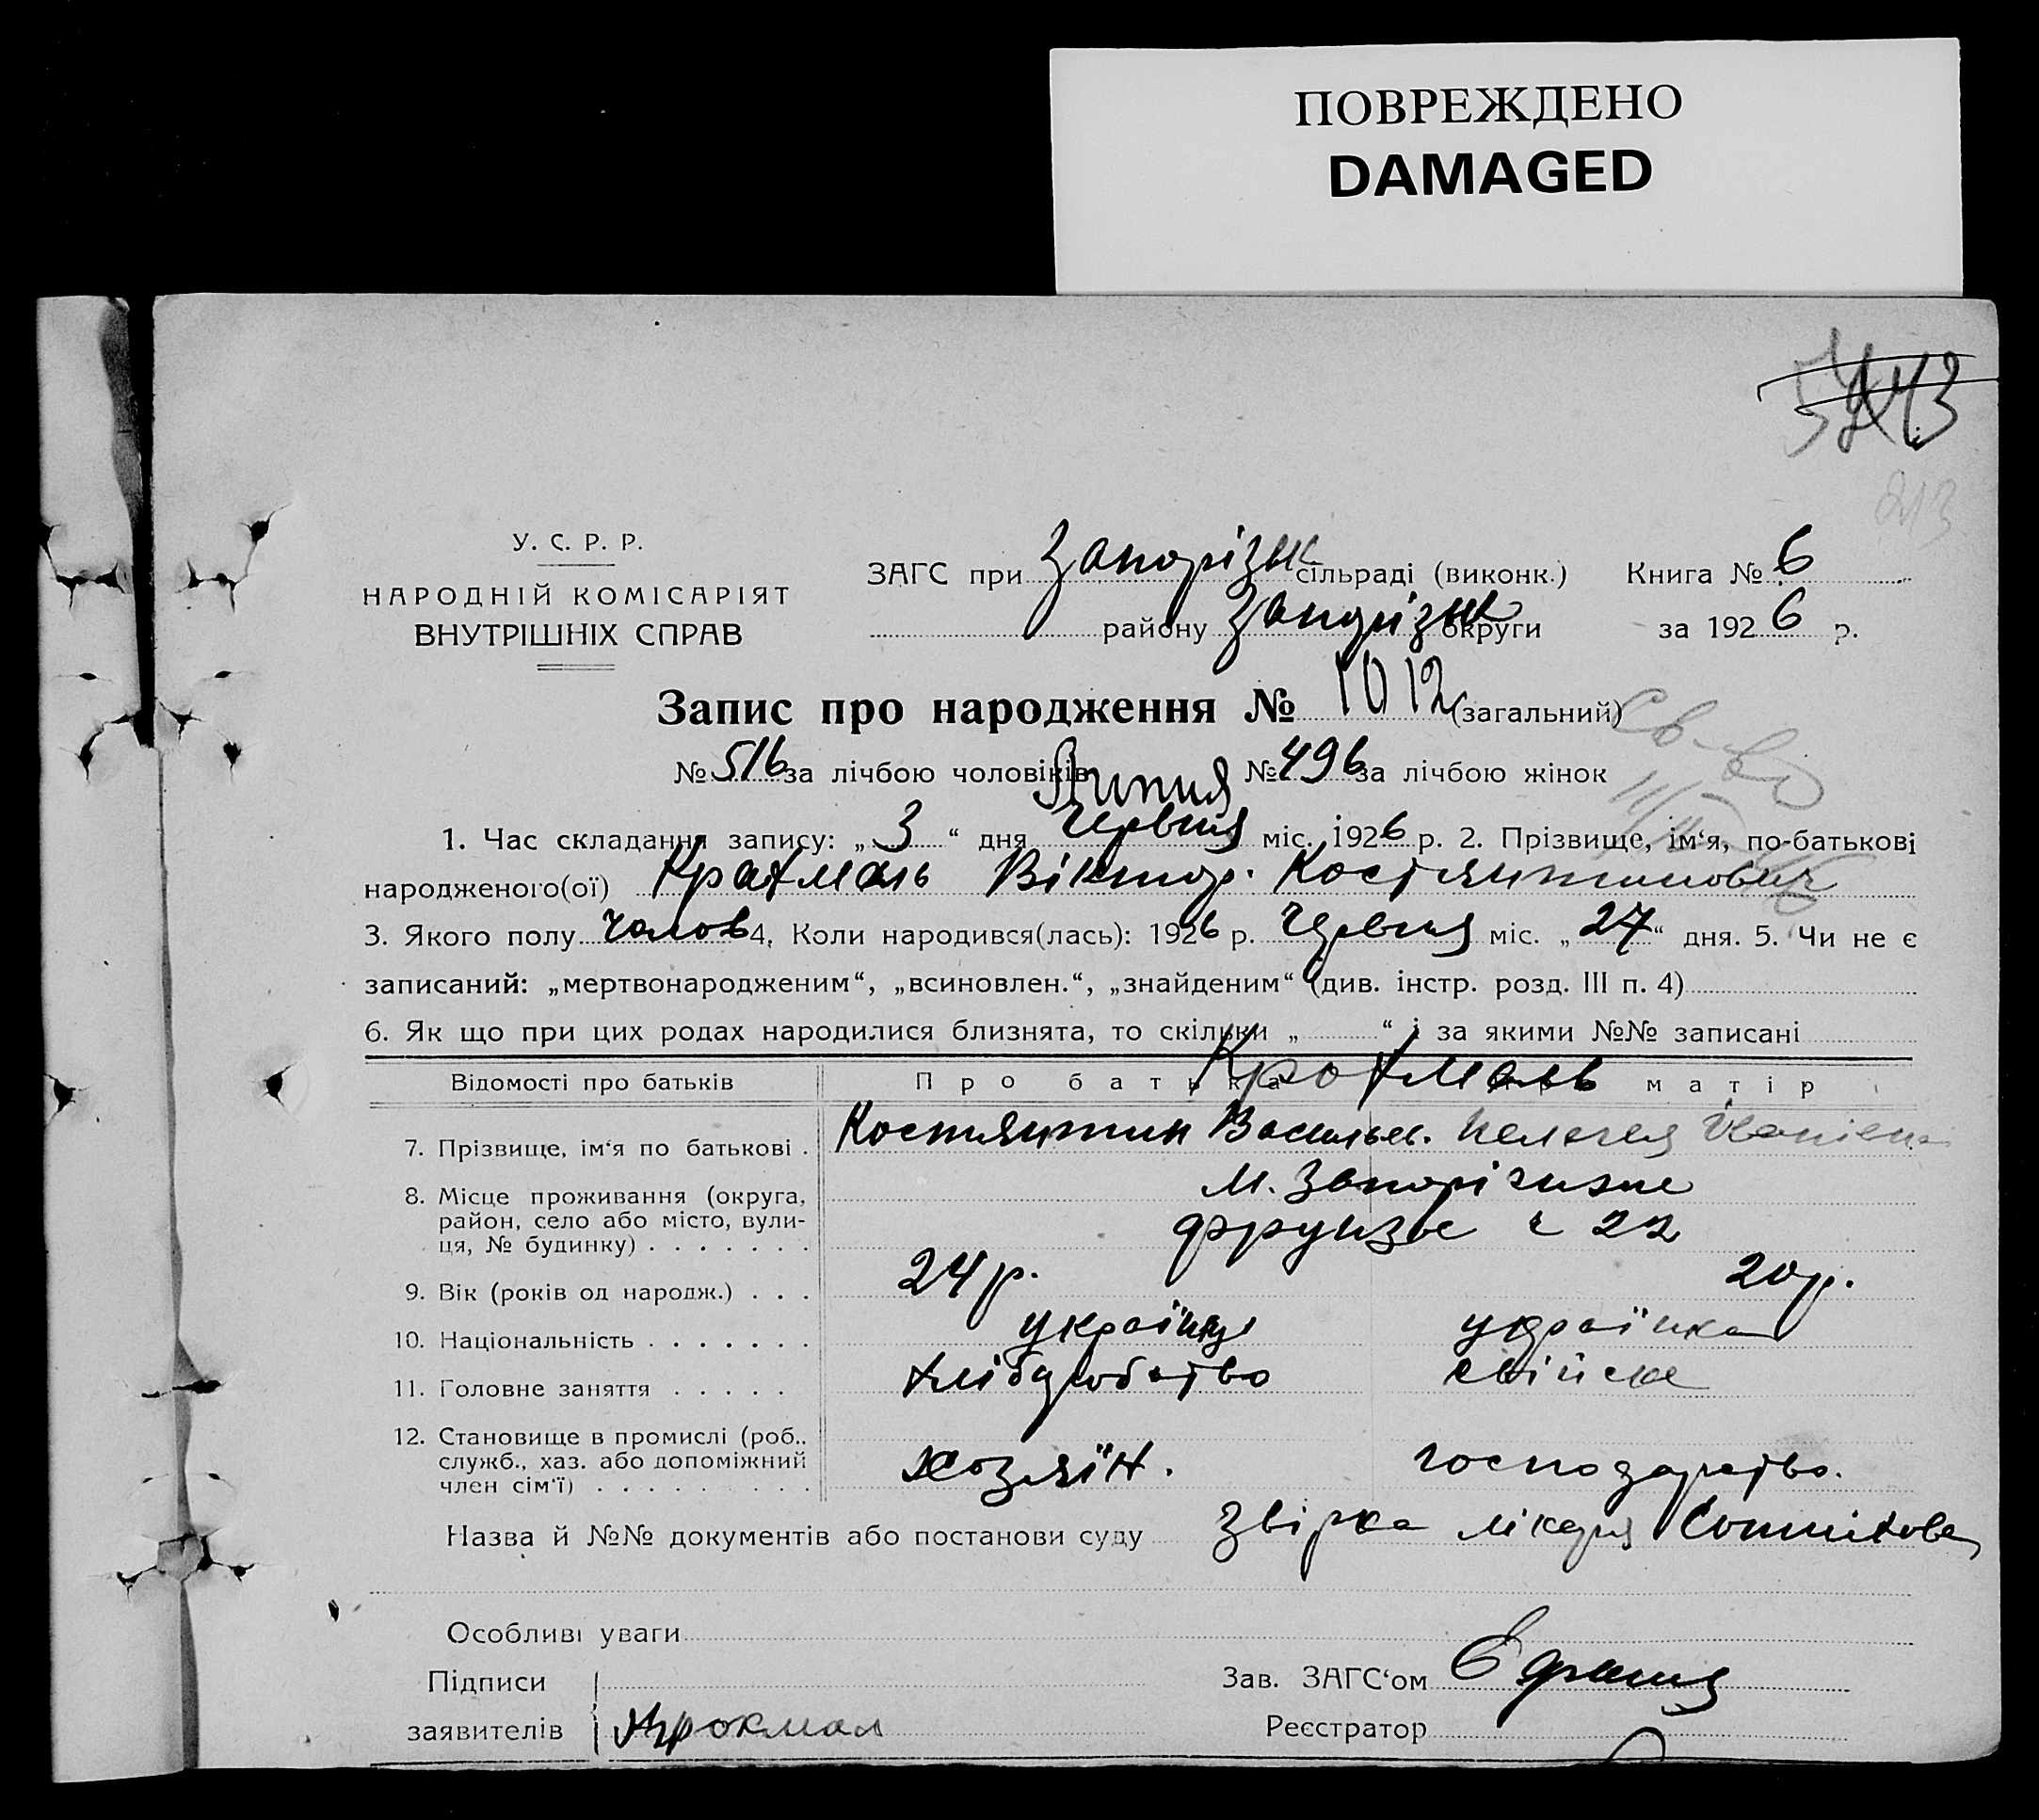 ПОВРЕЖДЕНО
DAMAGED
213
У. С. Р. Р.
НАРОДНІЙ КОМІСАРІЯТ
ВНУТРІШНІХ СПРАВ
ЗАГС при Запорізьк сільраді (виконк.) Книга № 6
району Запоріз округи за 1926 р.
Запис про народження № 1012 (загальний)
№ 516 за лічбою чоловіків № 496 за лічбою жінок
Св-во
Липня
1. Час складання запису: „ 3 “ дня Червня міс. 1926 р. 2. Прізвище, ім‘я, по-батькові
народженого(ої) Крахмаль Віктор. Костянтинович
3. Якого полу Чолов 4. Коли народився(лась): 1926 р. Червня міс. „ 27 “ дня. 5. Чи не є
записаний: „мертвонародженим“, „всиновлен.“, „знайденим“ (див. інстр. розд. III п. 4)
6. Як що при цих родах народилися близнята, то скільки „ “ і за якими №№ записані
Відомості про батьків Про батька матір
Крохмаль
7. Прізвище, ім‘я по батькові . Костянтин Васильев. Пелагея
8. Місце проживання (округа, м. Запоріжжє
район, село або місто, вули-
ця, № будинку) . . . . . . . Фрунзе ч 22
9. Вік (років од народж.) . . . 24 р. 20 р.
10. Національність . . . . . . . українець українка
11. Головне заняття . . . . . хліборобство свійске
12. Становище в промислі (роб.,
служб., хаз. або допоміжний хозяїн. господарство.
член сім‘ї) . . . . . . . . .
Назва й №№ документів або постанови суду Звірка лікаря
Особливі уваги
Підписи Зав. ЗАГС‘ом
заявителів Крокмал Реєстратор